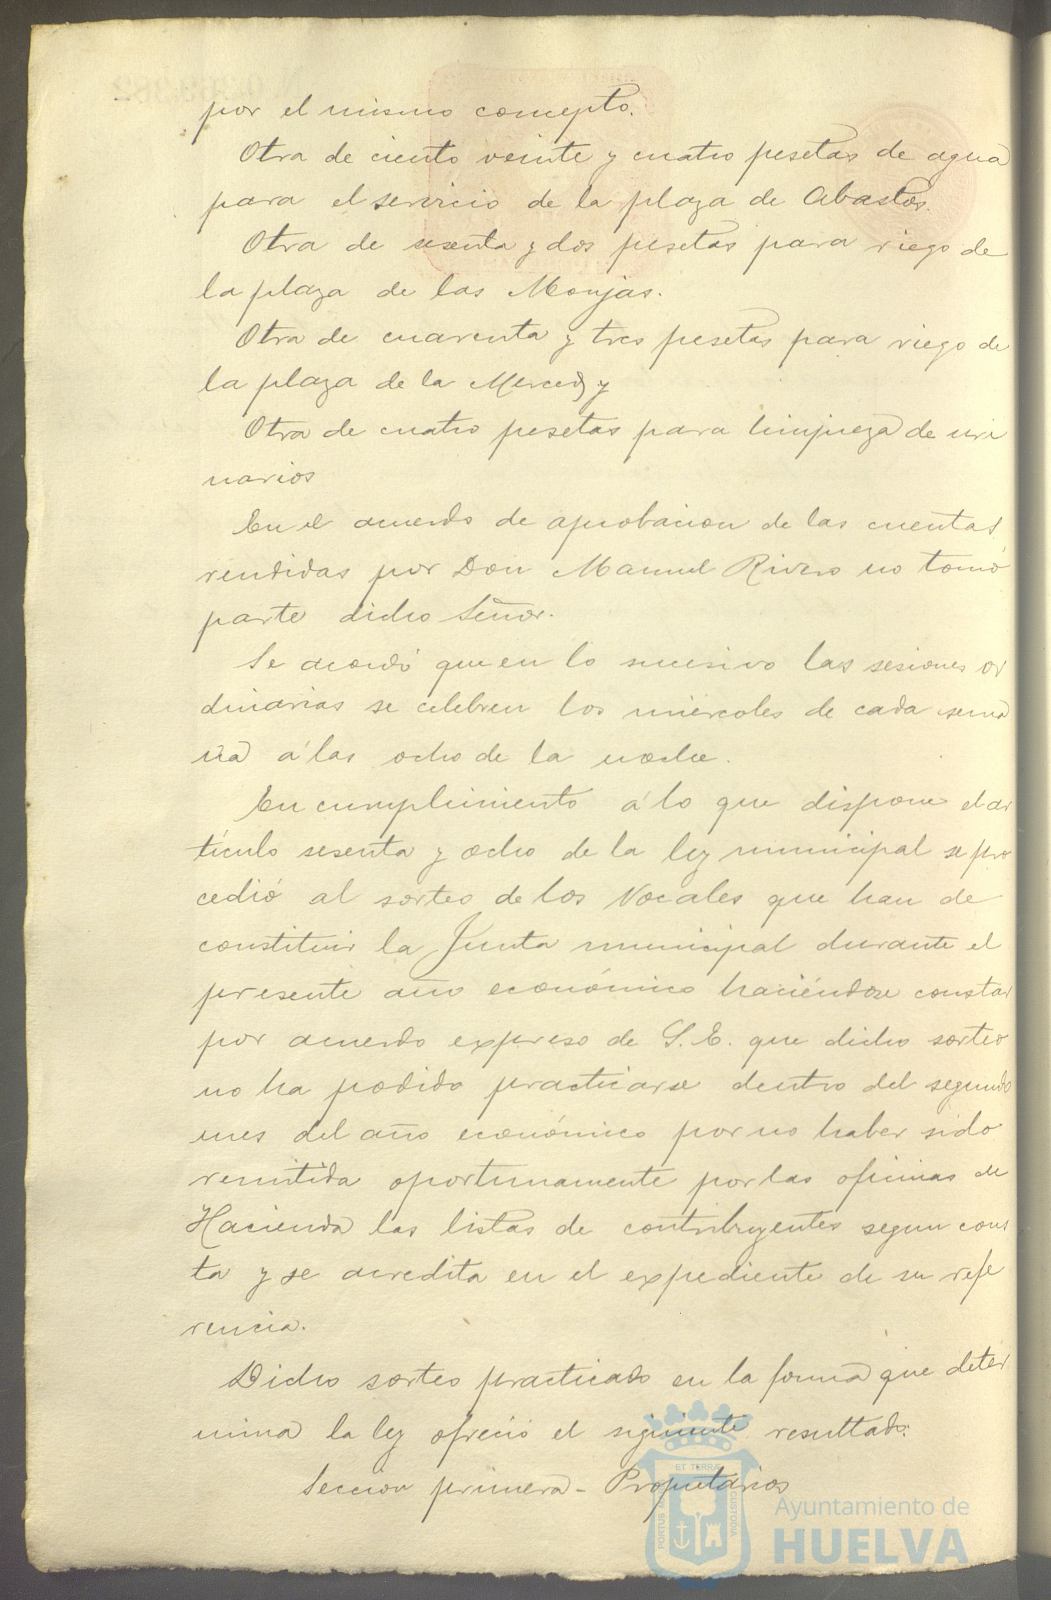 por el mismo concepto.
Otra de ciento veinte y cuatro pesetas de agua
para el servicio de la plaza de Abastos.
Otra de sesenta y dos pesetas para riego de
la plaza de las Monjas.
Otra de cuarenta y tres pesetas para riego de
la plaza de la Merced y
Otra de cuatro pesetas para limpieza de uri
narios
En el acuerdo de aprobacion de las cuentas
rendidas por Don Manuel Rivero no tomó
parte dicho Señor.
Se acordó que en lo sucesivo las sesiones or
dinarias se celebren los miércoles de cada sema
na á las ocho de la noche.
En cumplimiento á lo que dispone el ar
tículo sesenta y ocho de la ley municipal se pro
cedió al sorteo de los Vocales que han de
constituir la Junta municipal durante el
presente año económico haciéndose constar
por acuerdo expreso de S. E. que dicho sorteo
no ha podido practicarse dentro del segundo
mes del año económico por no haber sido
remitida oportunamente por las oficinas de
Hacienda las listas de contribuyentes segun cons
ta y se acredita en el expediente de su refe
rencia.
Dicho sorteo practicado en la forma que deter
mina la ley ofreció el siguiente resultado:
Seccion primera - Propietarios
Ayuntamiento de
HUELVA
PORTUS
ET TERRÆ
CUSTODIA